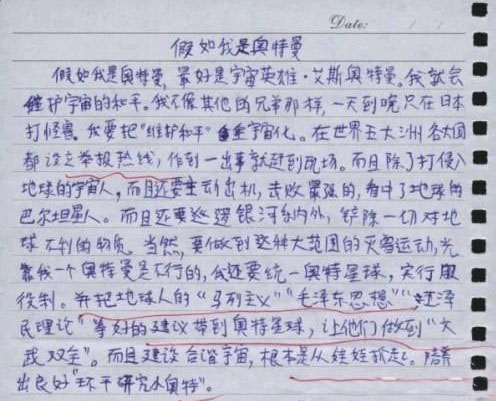 Date: / /
假如我是奥特曼
假如我是奥特曼,最好是宇宙英雄·艾斯奥特曼。我就会
维护宇宙的和平。我不像其他的兄弟那样,一天到晚只在日本
打怪兽。我要把“维护和平”宇宙化。在世界五大洲各大国
都设立举报热线,作到一出事就赶到现场。而且除了打侵入
地球的宇宙人,而且还要主动出机,去收最强的,看中了地球的
巴尔坦星人。而且还要巡逻银河系内外,铲除一切对地
球不利的物质。当然,要做到这种大范围的灭害运动,光
靠我一个奥特曼是不行的,我还要统一奥特星球,实行服
役制。并把地球人的“马列主义”“毛泽东思想”“江泽
民理论”等好的建议带到奥特星球,让他们做到“文
武双全”。而且建设合谐宇宙,根本是从娃娃抓起。培养
出良好“环干研究小奥特”。